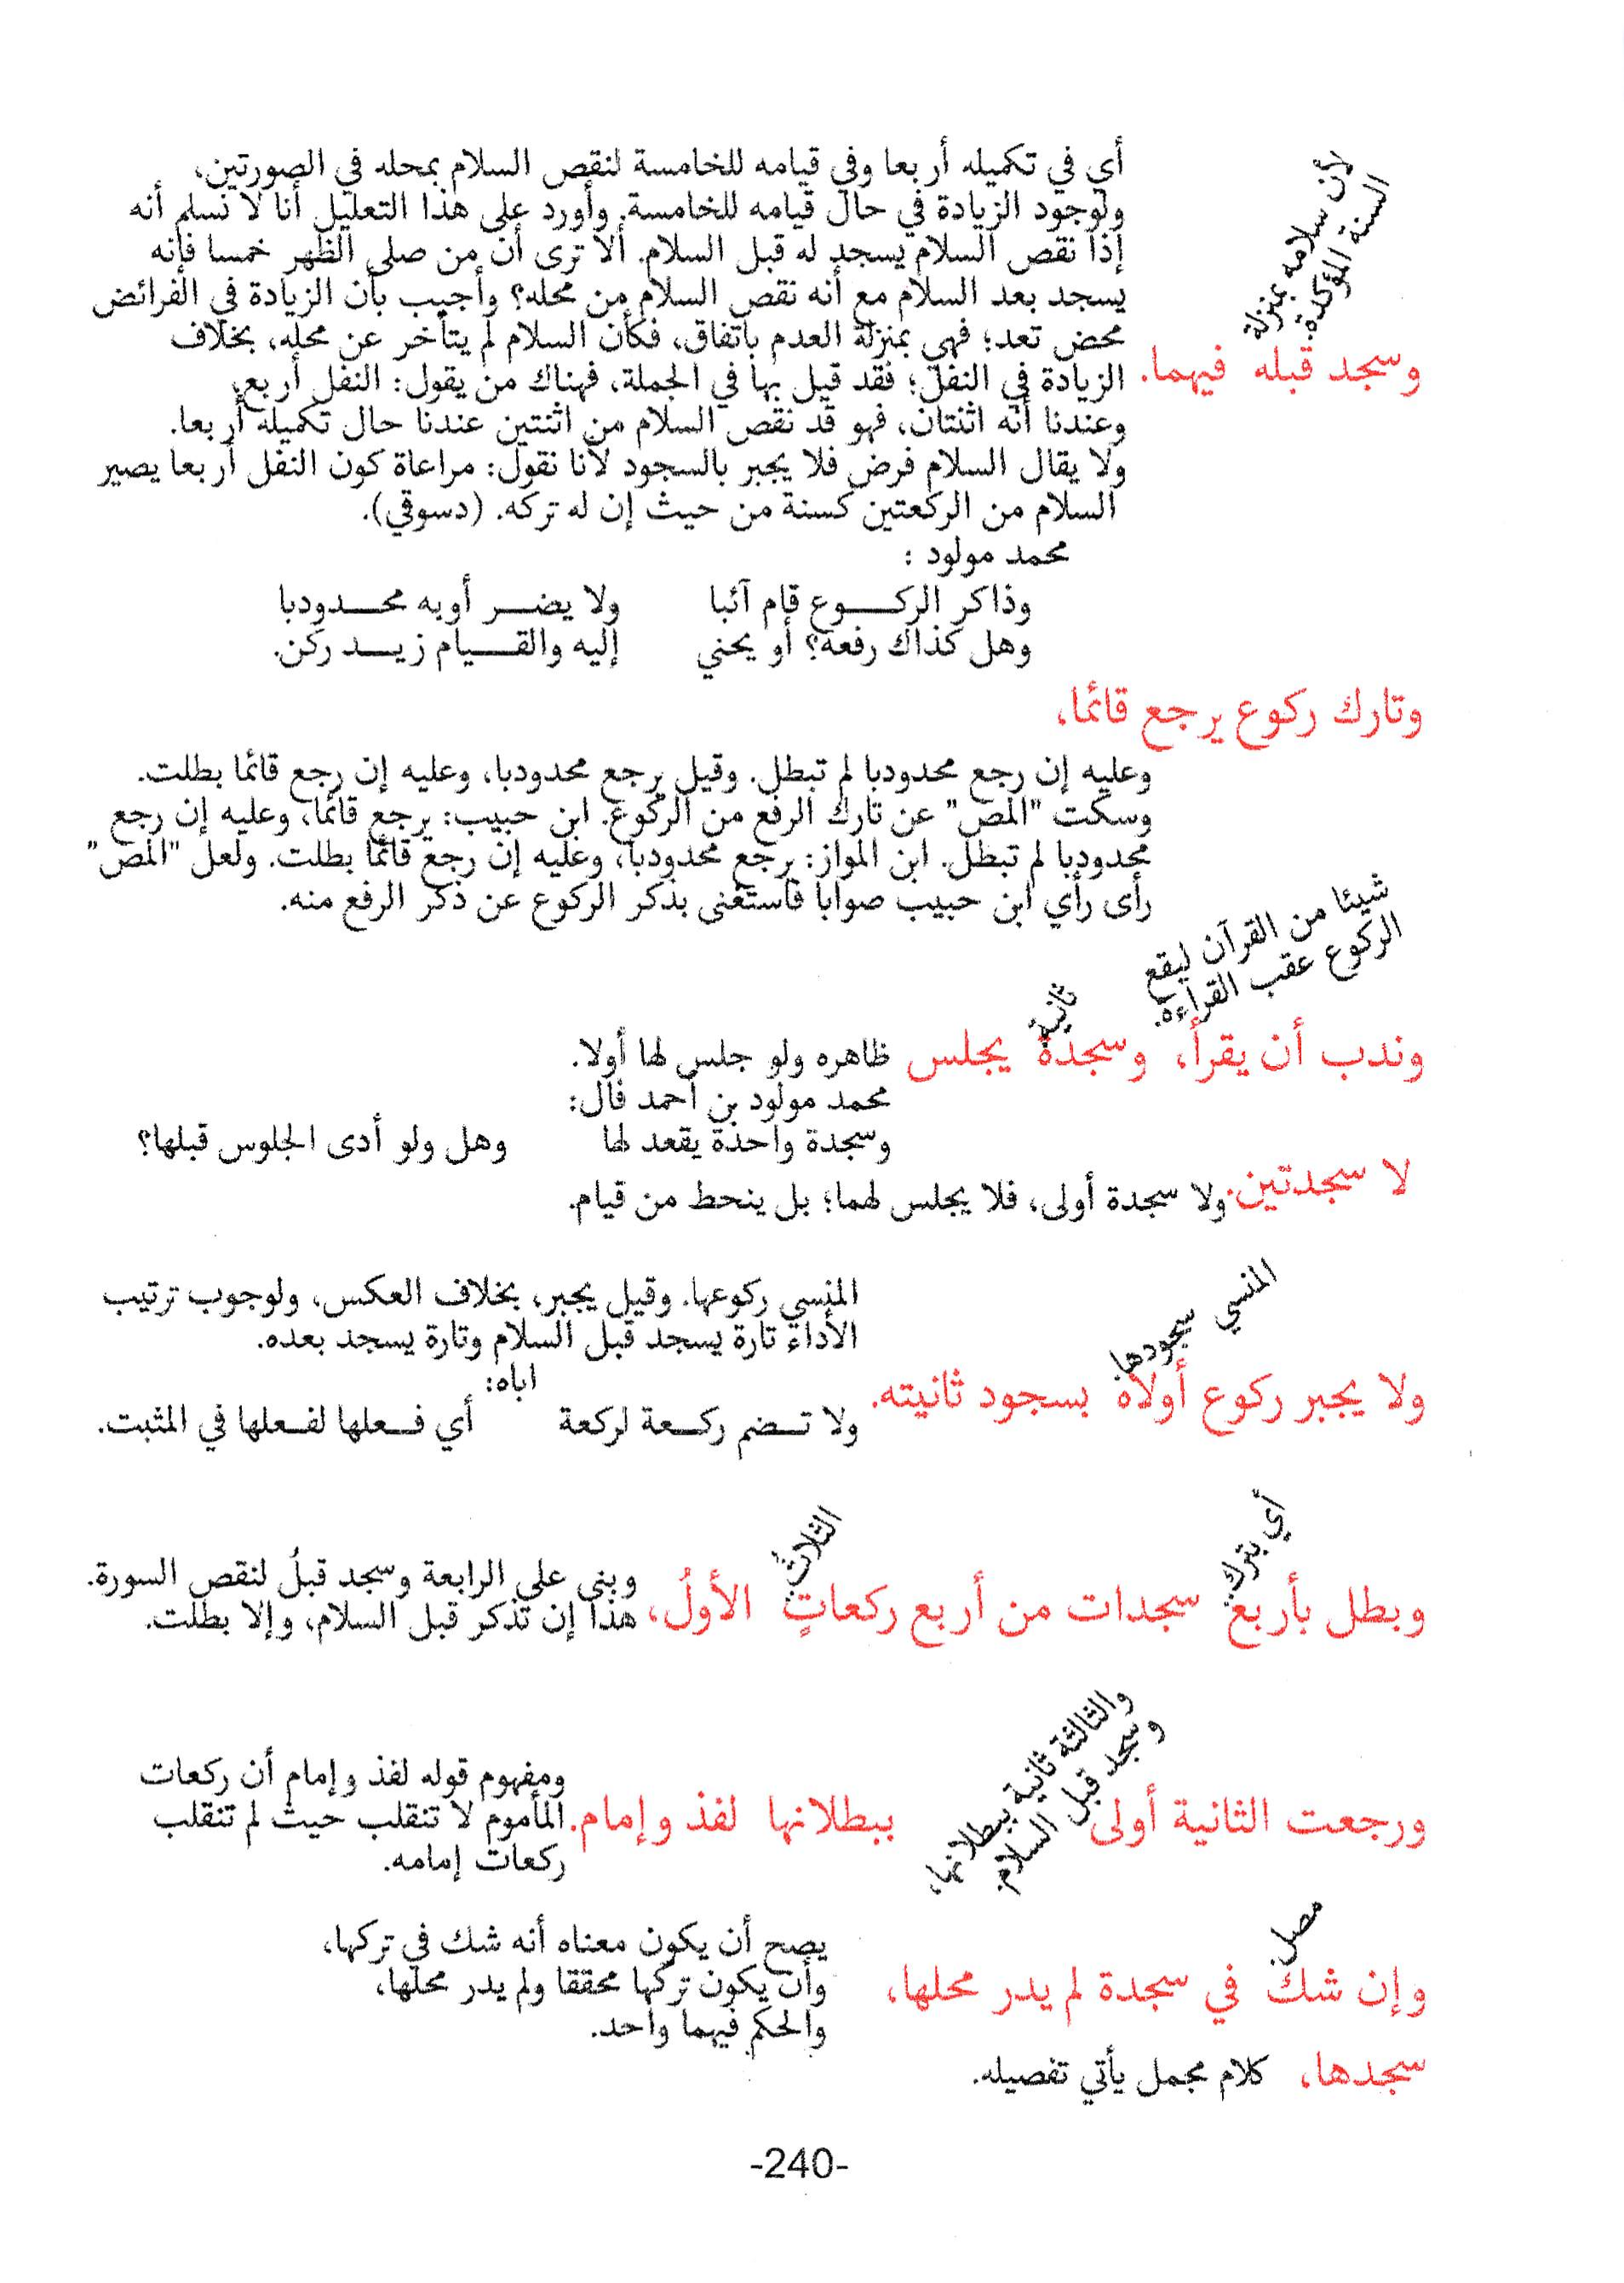 لأن سلامه بمنزلة
السنة المؤكدة.
وسجد قبله فيهما.
أي في تكميله أربعا وفي قيامه للخامسة لنقص السلام بمحله في الصورتين،
ولوجود الزيادة في حال قيامه للخامسة. وأورد على هذا التعليل أنا لا نسلم أنه
إذا نقص السلام يسجد له قبل السلام. ألا ترى أن من صلى الظهر خمسا فإنه
يسجد بعد السلام مع أنه نقص السلام من محله؟ وأجيب بأن الزيادة في الفرائض
محض تعد؛ فهي بمنزلة العدم باتفاق، فكأن السلام لم يتأخر عن محله، بخلاف
الزيادة في النفل؛ فقد قيل بها في الجملة، فهناك من يقول: النفل أربع،
وعندنا أنه اثنتان، فهو قد نقص السلام من اثنتين عندنا حال تكميله أربعا.
ولا يقال السلام فرض فلا يجبر بالسجود لأنا نقول: مراعاة كون النفل أربعا يصير
السلام من الركعتين كسنة من حيث إن له تركه. (دسوقي).
محمد مولود :
وذاكر الركوع قام آئبا ولا يضر أوبه محدودبا
وهل كذاك رفعه؟ أو يحني إليه والقيام زيد ركن.
وتارك ركوع يرجع قائما،
وعليه إن رجع محدودبا لم تبطل. وقيل يرجع محدودبا، وعليه إن رجع قائما بطلت.
وسكت "المص" عن تارك الرفع من الركوع. ابن حبيب: يرجع قائما، وعليه إن رجع
محدودبا لم تبطل. ابن المواز: يرجع محدودبا، وعليه إن رجع قائما بطلت. ولعل "المص"
رأى رأي ابن حبيب صوابا فاستغنى بذكر الركوع عن ذكر الرفع منه.
شيئا من القرآن ليقع
الركوع عقب القراءة.
ثانية.
وندب أن يقرأ، وسجدة يجلس ظاهره ولو جلس لها أولا.
محمد مولود بن أحمد فال:
وسجدة واحدة يقعد لها وهل ولو أدى الجلوس قبلها؟
لا سجدتين. ولا سجدة أولى، فلا يجلس لهما؛ بل ينحط من قيام.
المنسي سجودها.
المنسي ركوعها. وقيل يجبر، بخلاف العكس، ولوجوب ترتيب
الأداء تارة يسجد قبل السلام وتارة يسجد بعده.
اباه:
ولا يجبر ركوع أولاه بسجود ثانيته.
ولا تضم ركعة لركعة أي فعلها لفعلها في المثبت.
أي بترك.
الثلاثُ.
وبطل بأربع سجدات من أربع ركعاتٍ الأولُ،
وبنى على الرابعة وسجد قبلُ لنقص السورة.
هذا إن تذكر قبل السلام، وإلا بطلت.
والثالثة ثانية ببطلانها،
وسجد قبل السلام.
ورجعت الثانية أولى ببطلانها لفذ وإمام.
ومفهوم قوله لفذ وإمام أن ركعات
المأموم لا تنقلب حيث لم تنقلب
ركعات إمامه.
مصل.
وإن شك في سجدة لم يدر محلها،
يصح أن يكون معناه أنه شك في تركها،
وأن يكون تركها محققا ولم يدر محلها،
والحكم فيهما واحد.
سجدها، كلام مجمل يأتي تفصيله.
-240-